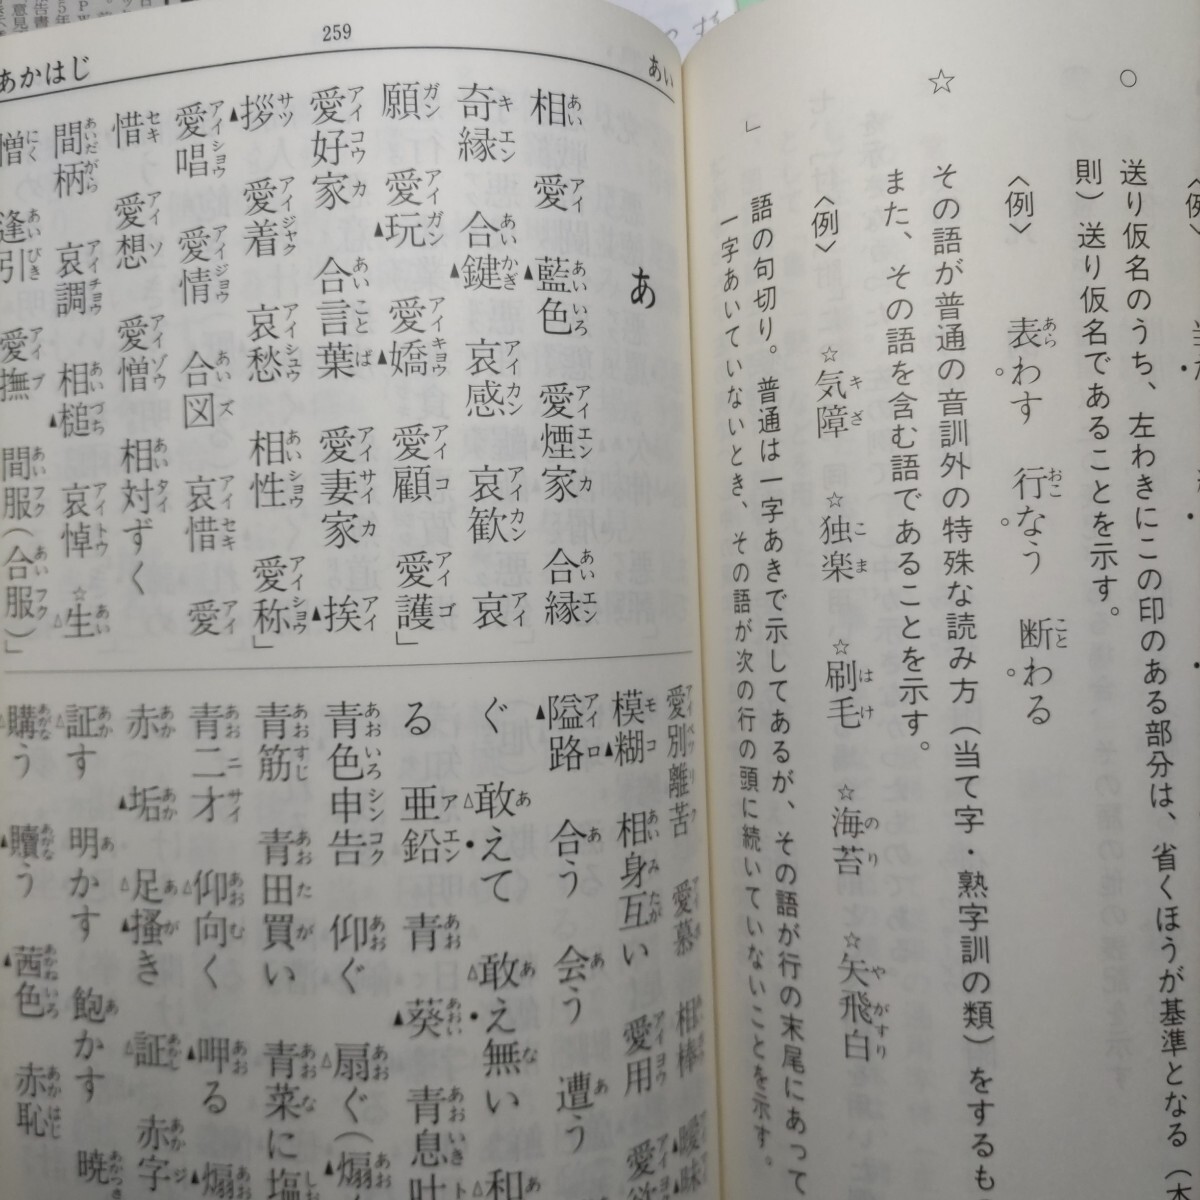 〈例〉
○
送り仮名のうち、左わきにこの印のある部分は、省くほうが基準となる（本
則）送り仮名であることを示す。
〈例〉
表わす 行なう 断わる
☆
その語が普通の音訓外の特殊な読み方（当て字・熟字訓の類）をするも
また、その語を含む語であることを示す。
〈例〉
☆気障 ☆独楽 ☆刷毛 ☆海苔 ☆矢飛白
」
語の句切り。普通は一字あきで示してあるが、その語が行の末尾にあって
一字あいていないとき、その語が次の行の頭に続いていないことを示す。
259
あい
あかはじ
あ
相 愛 藍色 愛煙家 合縁
奇縁 合鍵 哀感 哀歓 哀
願 愛玩 愛嬌 愛顧 愛護」
愛好家 合言葉 愛妻家 挨
拶 愛着 哀愁 相性 愛称」
愛唱 愛情 合図 哀惜 愛
惜 愛想 愛憎 相対ずく
間柄 哀調 相槌 哀悼 ☆生
憎 逢引 愛撫 間服（合服）」
愛別離苦 愛慕 相棒 曖昧
模糊 相身互い 愛用 愛欲
隘路 合う 会う 遭う
ぐ 敢えて 敢え無い 和
る 亜鉛 青 葵 青息吐
青色申告 仰ぐ 扇ぐ（煽ぐ
青筋 青田買い 青菜に塩
青二才 仰向く 呷る 煽
赤 垢 足搔き 証 赤字
証す 明かす 飽かす 暁
購う 贖う 茜色 赤恥